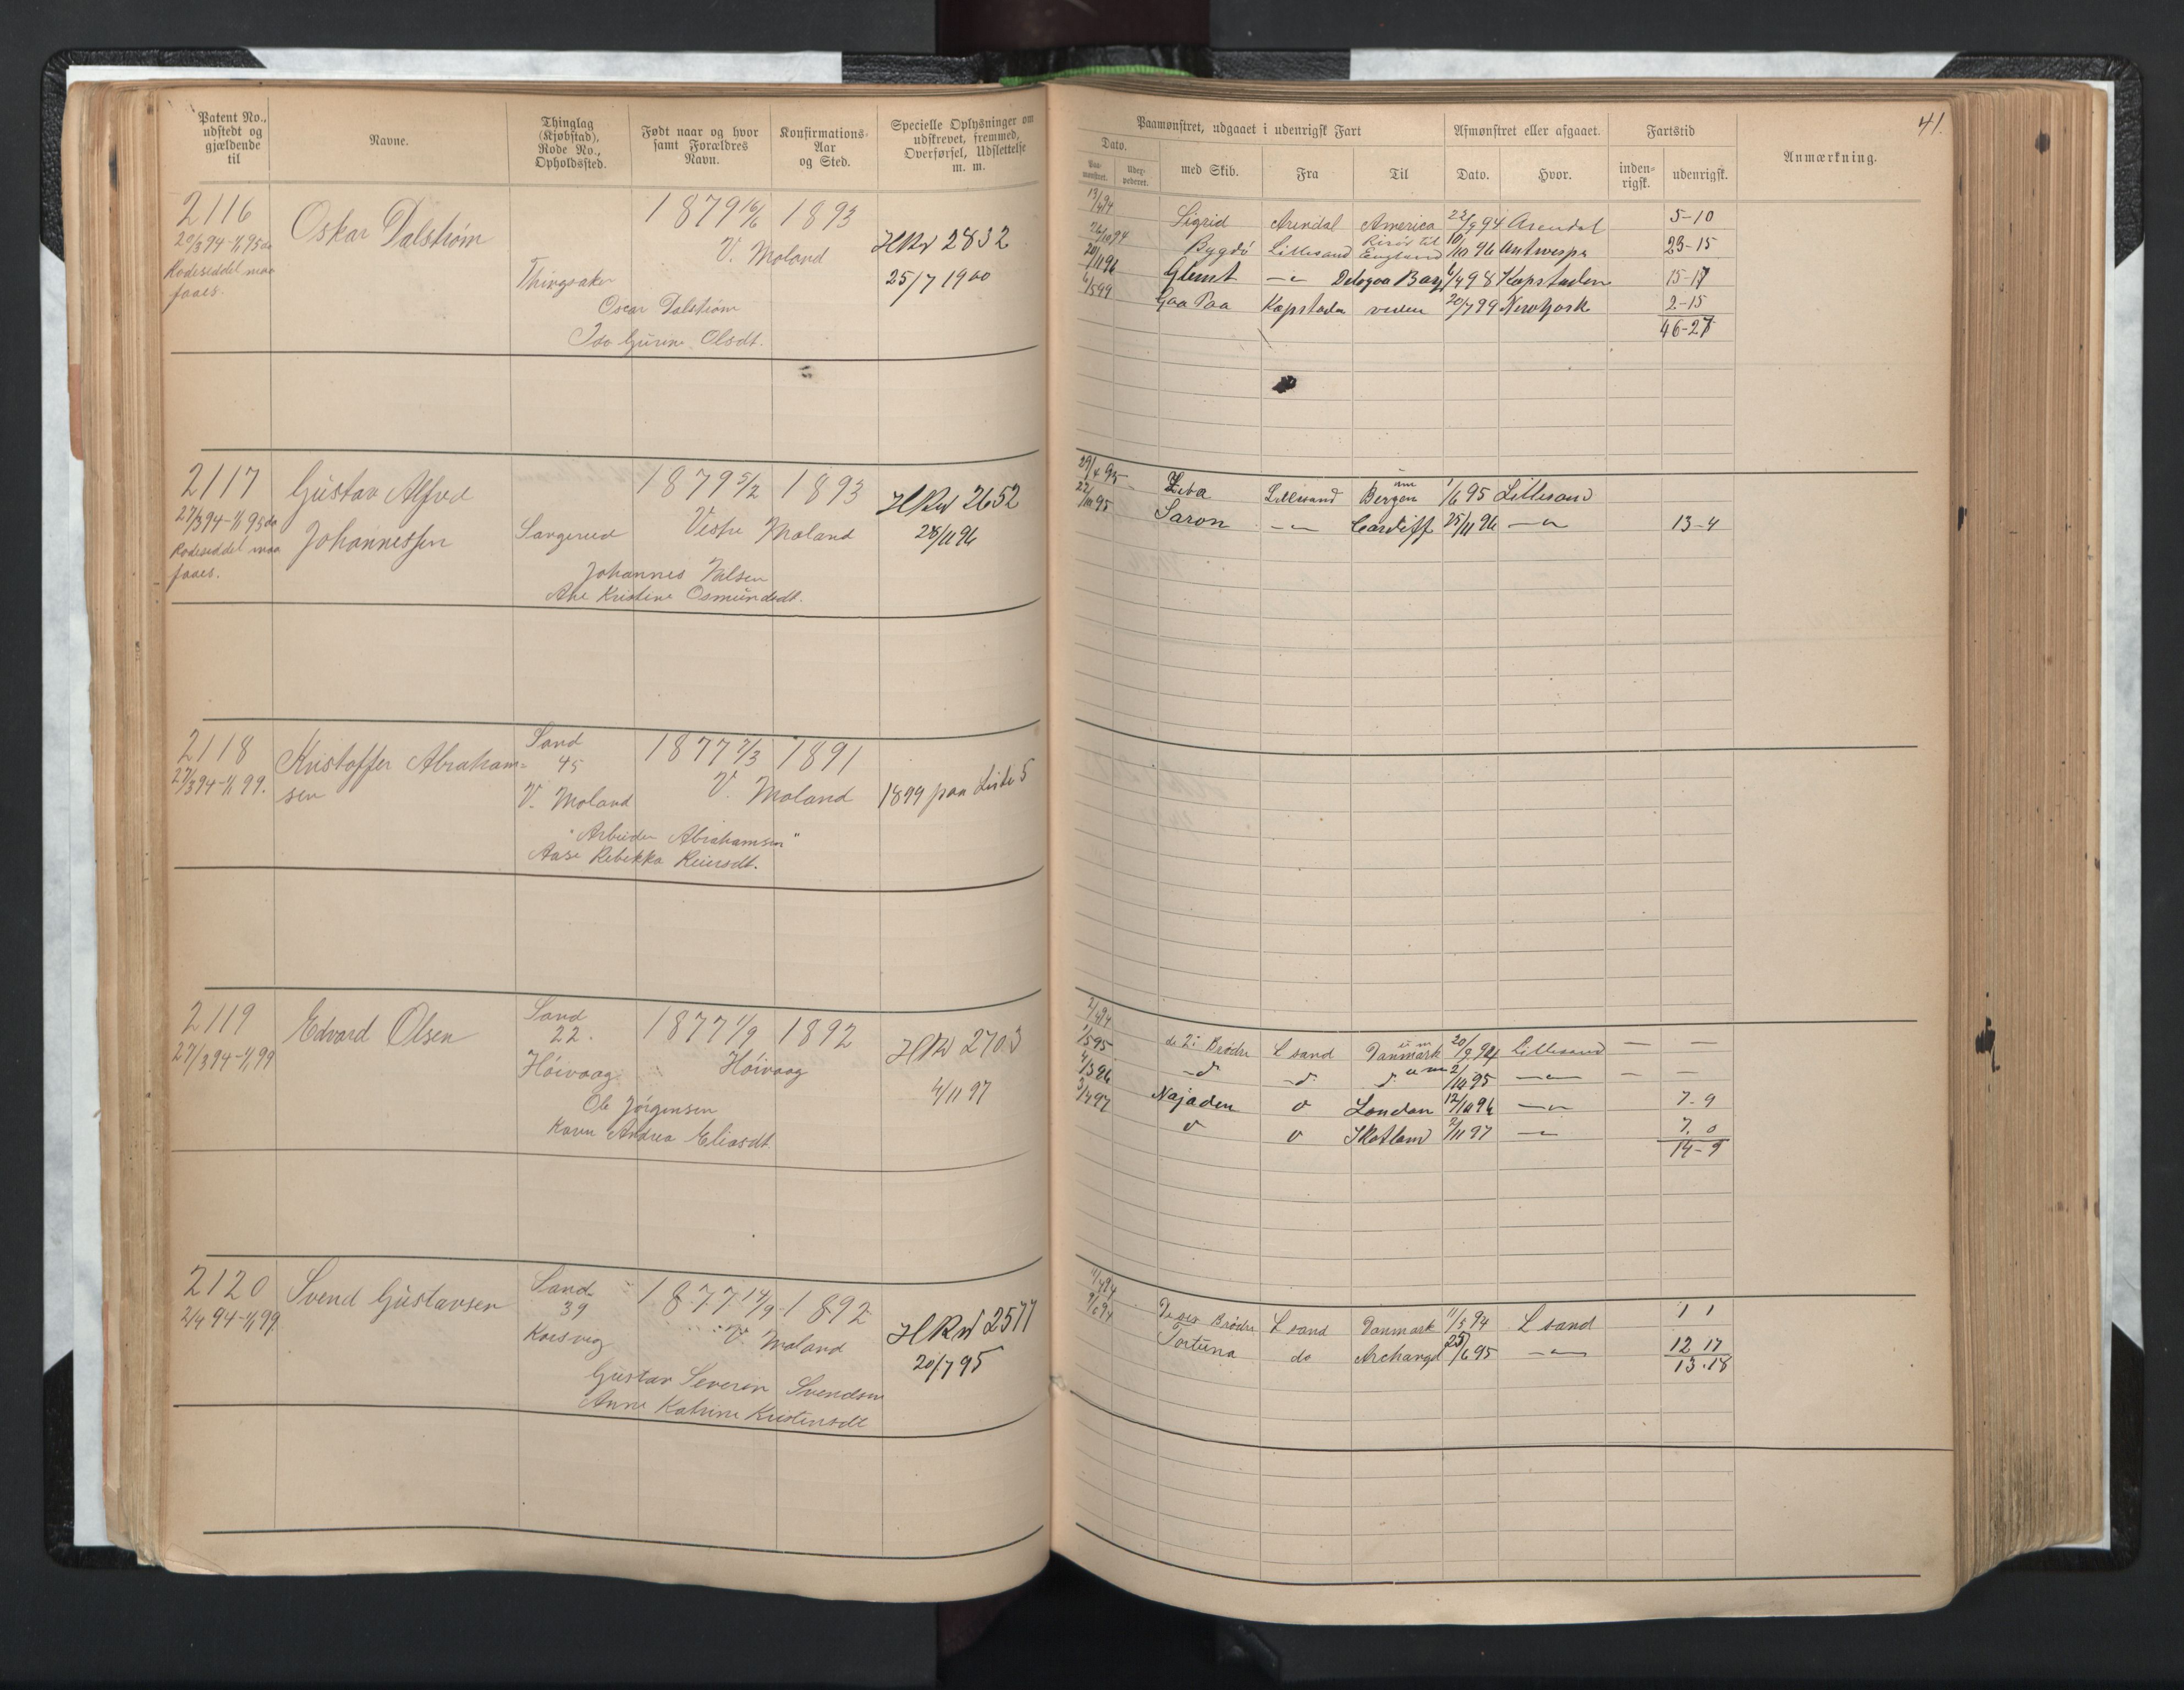 Patent No., udstedt og gjældende til
Navne.
Thinglag (Kjøbstad), Rode No., Opholdssted.
Født naar og hvor samt Forældres Navn.
Konfirmations-Aar og Sted.
Specielle Oplysninger om udskrevet, fremmed, Overførsel, Udslettelse m. m.
2116
Oskar Dalstrøm
1879 16/6
1893
V. Moland
HRul 2832
25/7 1900
Rodeseddel maa
faaes.
Thingsaker
Oscar Dalstrøm
Ida Gurine Olsdt.
2117
Gustav Alfred
Johannessen
1879 5/2
1893
Vestre Moland
HRul 2652
28/11 96
27/3 94-1/1 95 da
Rodeseddel maa
faaes.
Sangereid
Johannes Nilsen
Ane Kristine Osmundsdt.
2118
27/3 94-1/1 99.
Kristoffer Abraham-
sen
Sand
45
V. Moland
1877 7/3
1891
V. Moland
1899 paa Liste 5
"Arbeider Abrahamsen"
Aase Rebekka Reiersdt.
2119
27/3 94-1/1 99
Edvard Olsen
Sand
22.
Høivaag
1877 1/9
1892
Høivaag
HRul 2703
4/11 97
Ole Jørgensen
Karen Andrea Eliasdt
2120
2/4 94-1/1 99.
Svend Gustavsen
Sand
39
Kosvig
1877 14/9
1892
V. Moland
HRul 2577
20/7 95
Gustav Severin Svendsen
Anne Katrine Kristensdt
41.
Paamønstret, udgaaet i udenrigsk Fart
Afmønstret eller afgaaet.
Fartstid
Anmærkning.
Dato.
Paamønstret.
med Skib.
Fra
Til
Dato.
Hvor.
inden-rigsk.
udenrigsk.
13/4 94 Sigrid Arendal America 22/9 94 Arendal 5-10
26/10 94 Bygdø Lillesand Risør til England 10/10 96 Antwerpn 23-15
20/11 96 Glimt -"- Delogoa Bay 6/4 98 Kapstaden 15-17
6/5 99 Gaa Paa Kapstaden verden 20/7 99 New York 2-15
46-27
29/4 95 Ziba Lillesand Bergen 1/6 95 Lillesand
22/10 95 Saron -"- Cardiff 25/11 96 -"- 13-4
2/4 94 de 2i Brødre L sand Danmark 20/9 94 Lillesand — —
1/5 95 -d- -d- d. 2/10 95 -"- — —
4/3 96 Najaden o London 12/10 96 -"- 7-9
3/4 97 o o Skotland 2/11 97 -"- 7.0
14-9
4/4 94 Brødre L sand Danmark 11/5 94 L sand 1 1
9/6 94 Fortuna do Archangel 25/6 95 -"- 12 17
13.18